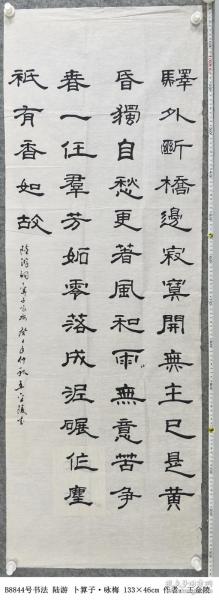 驛外斷橋邊寂寞開無主已是黃
昏獨自愁更著風和雨無意苦爭
春一任羣芳妬零落成泥碾作塵
衹有香如故
B8844号书法 陆游 卜算子·咏梅 133×46cm 作者：王金陵